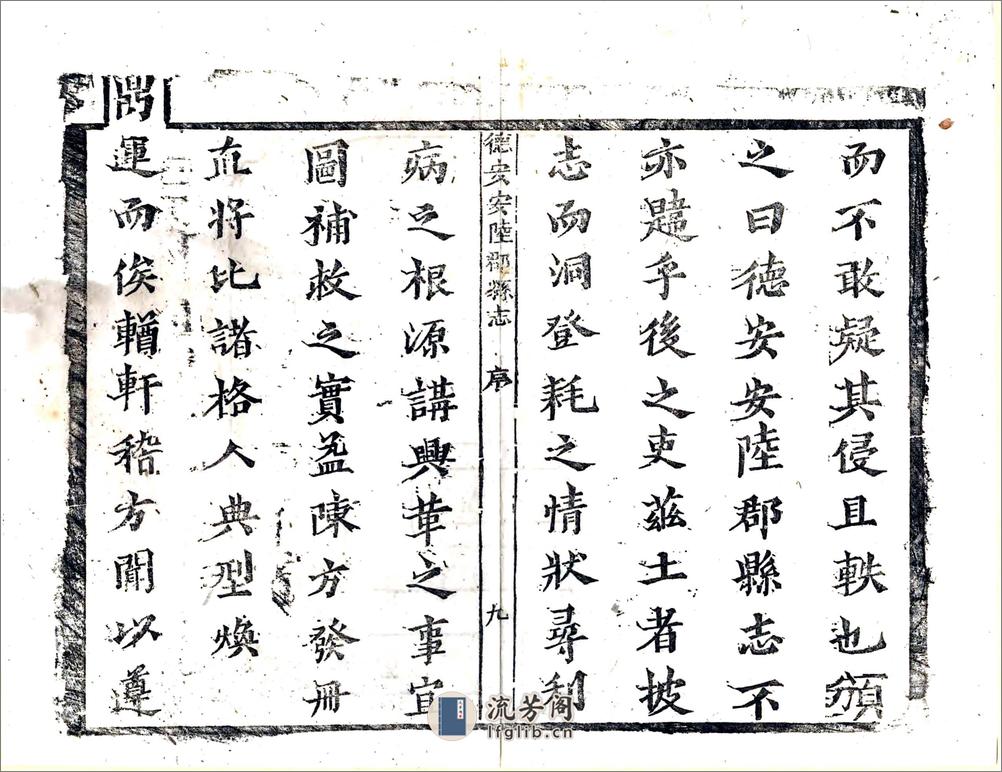 而不敢疑其侵且軼也頒
之曰德安安陸郡縣志不
亦韙乎後之吏茲土者披
志而洞登耗之情狀尋利
德安安陸郡縣志 序 九
病之根源講興革之事宜
圖補救之實益陳方發冊
直將比諸格人典型煥
鼎運而俟輶軒稽方聞以遵
流芳阁
lfglib.cn